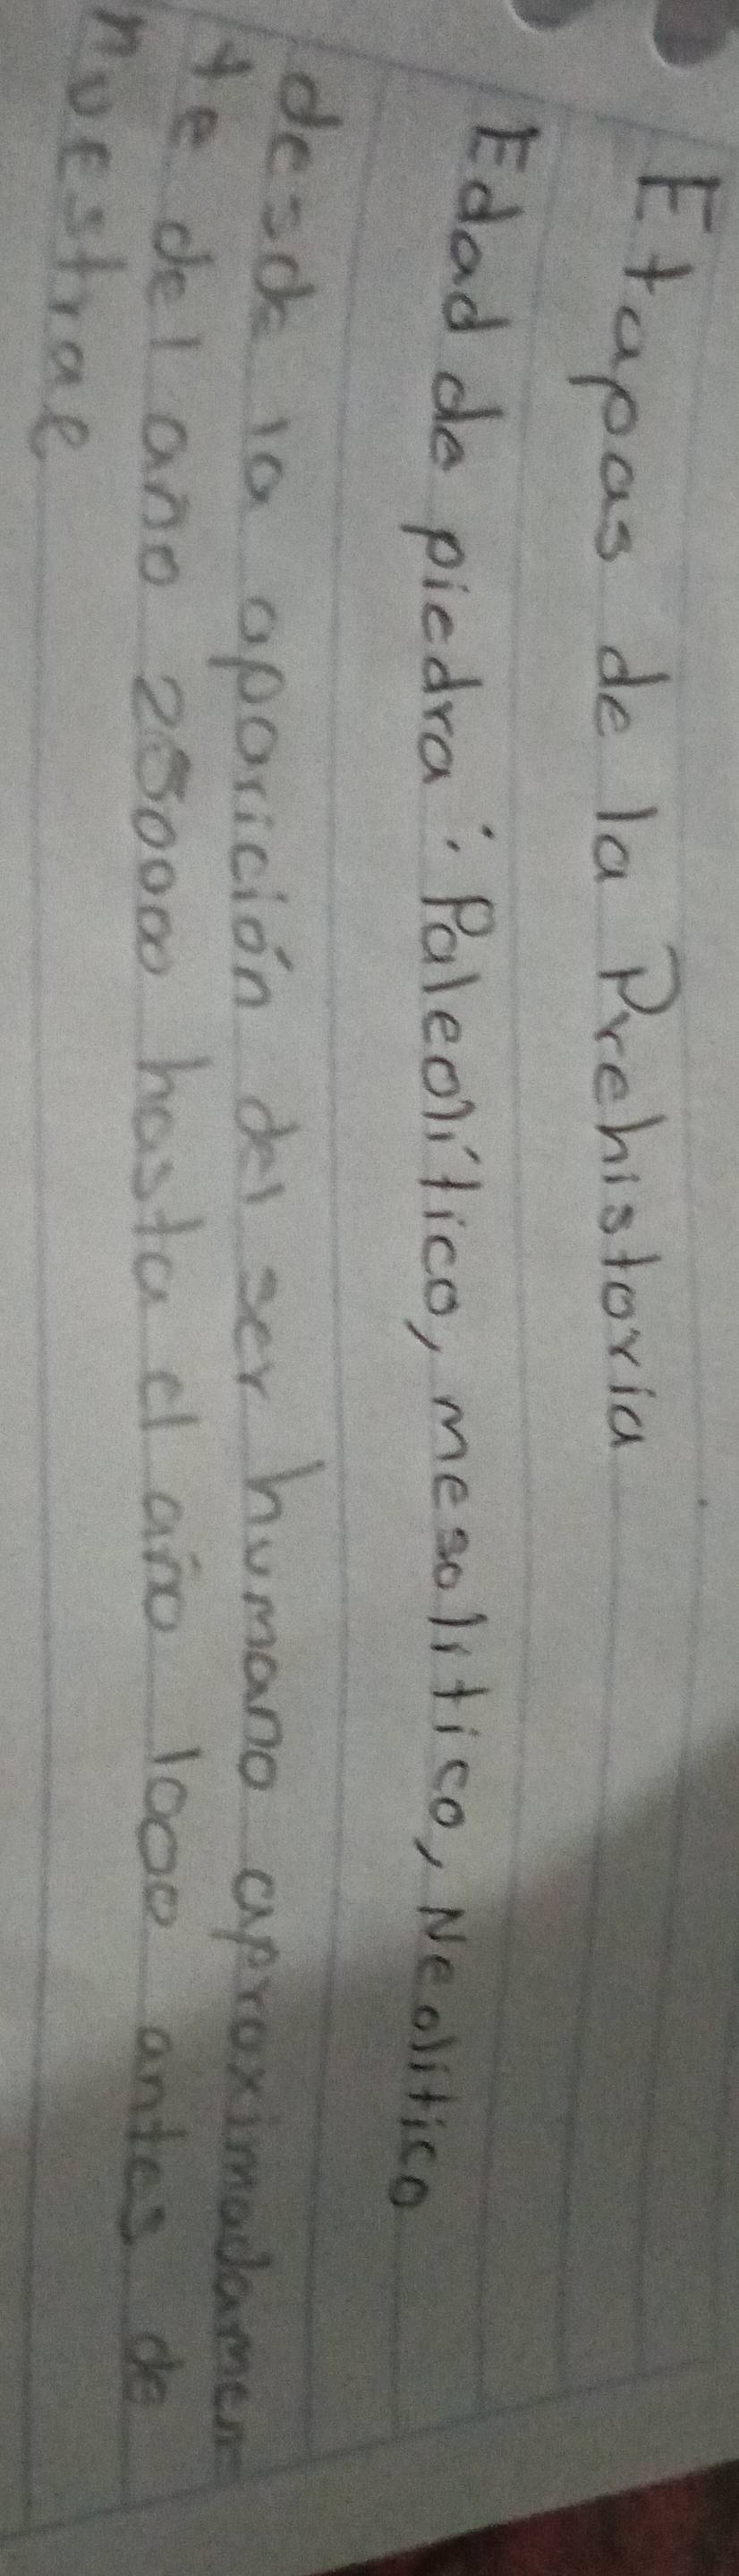 Etapas de la Prehistoria
Edad de piedra: Paleolítico, mesolitico, Neolitico
desde la aparición del ser humano aproximadamen
te del año 250000 hasta el año 1000 antes de
nuestrae